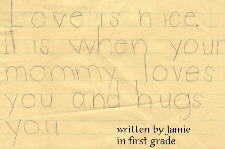 Love is nice.
It is when your
mommy loves
you and hugs
you
written by Jamie
in first grade